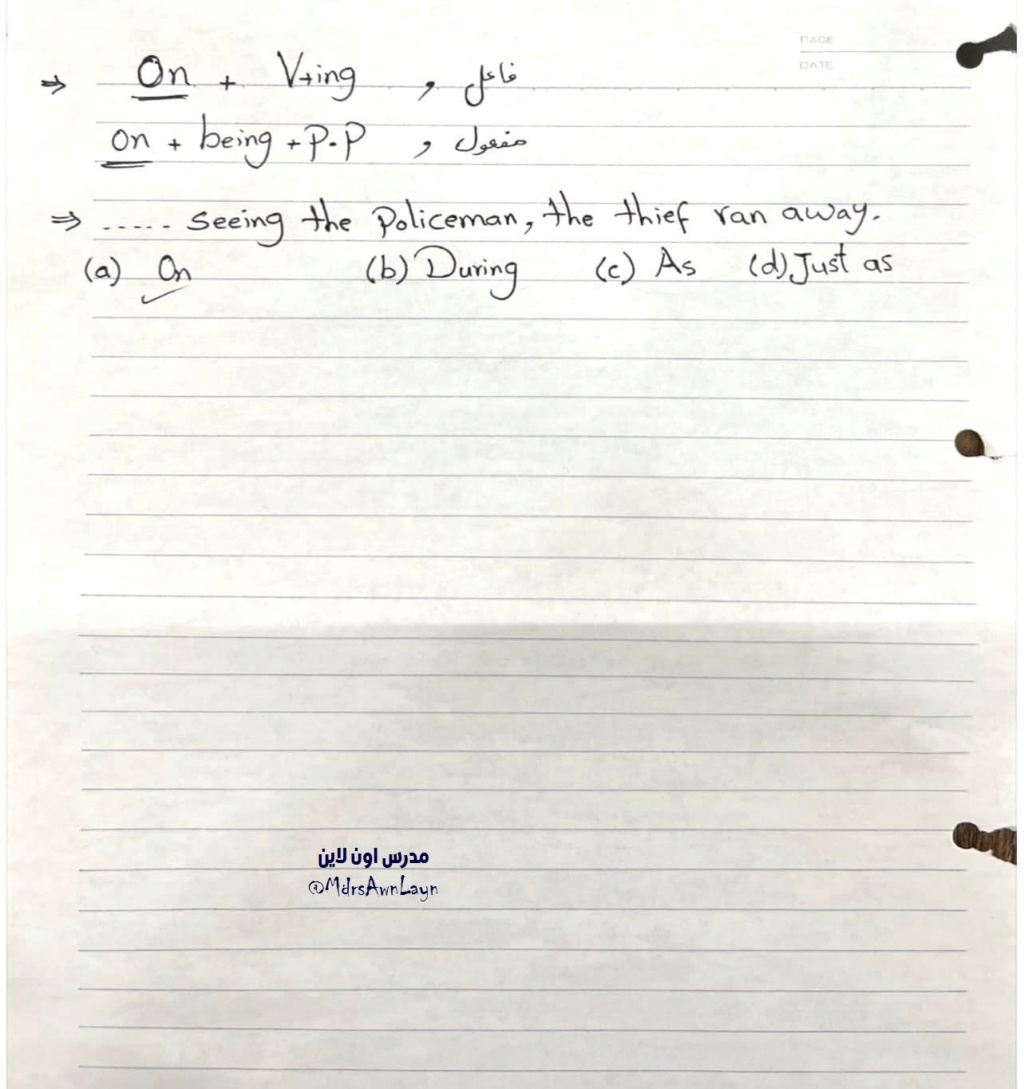 PAGE
DATE
⇒ On + V+ing , فاعل
on + being + P.P , مفعول
⇒ ..... seeing the Policeman, the thief ran away.
(a) On (b) During (c) As (d) Just as
مدرس اون لاين
@MdrsAwnLayn